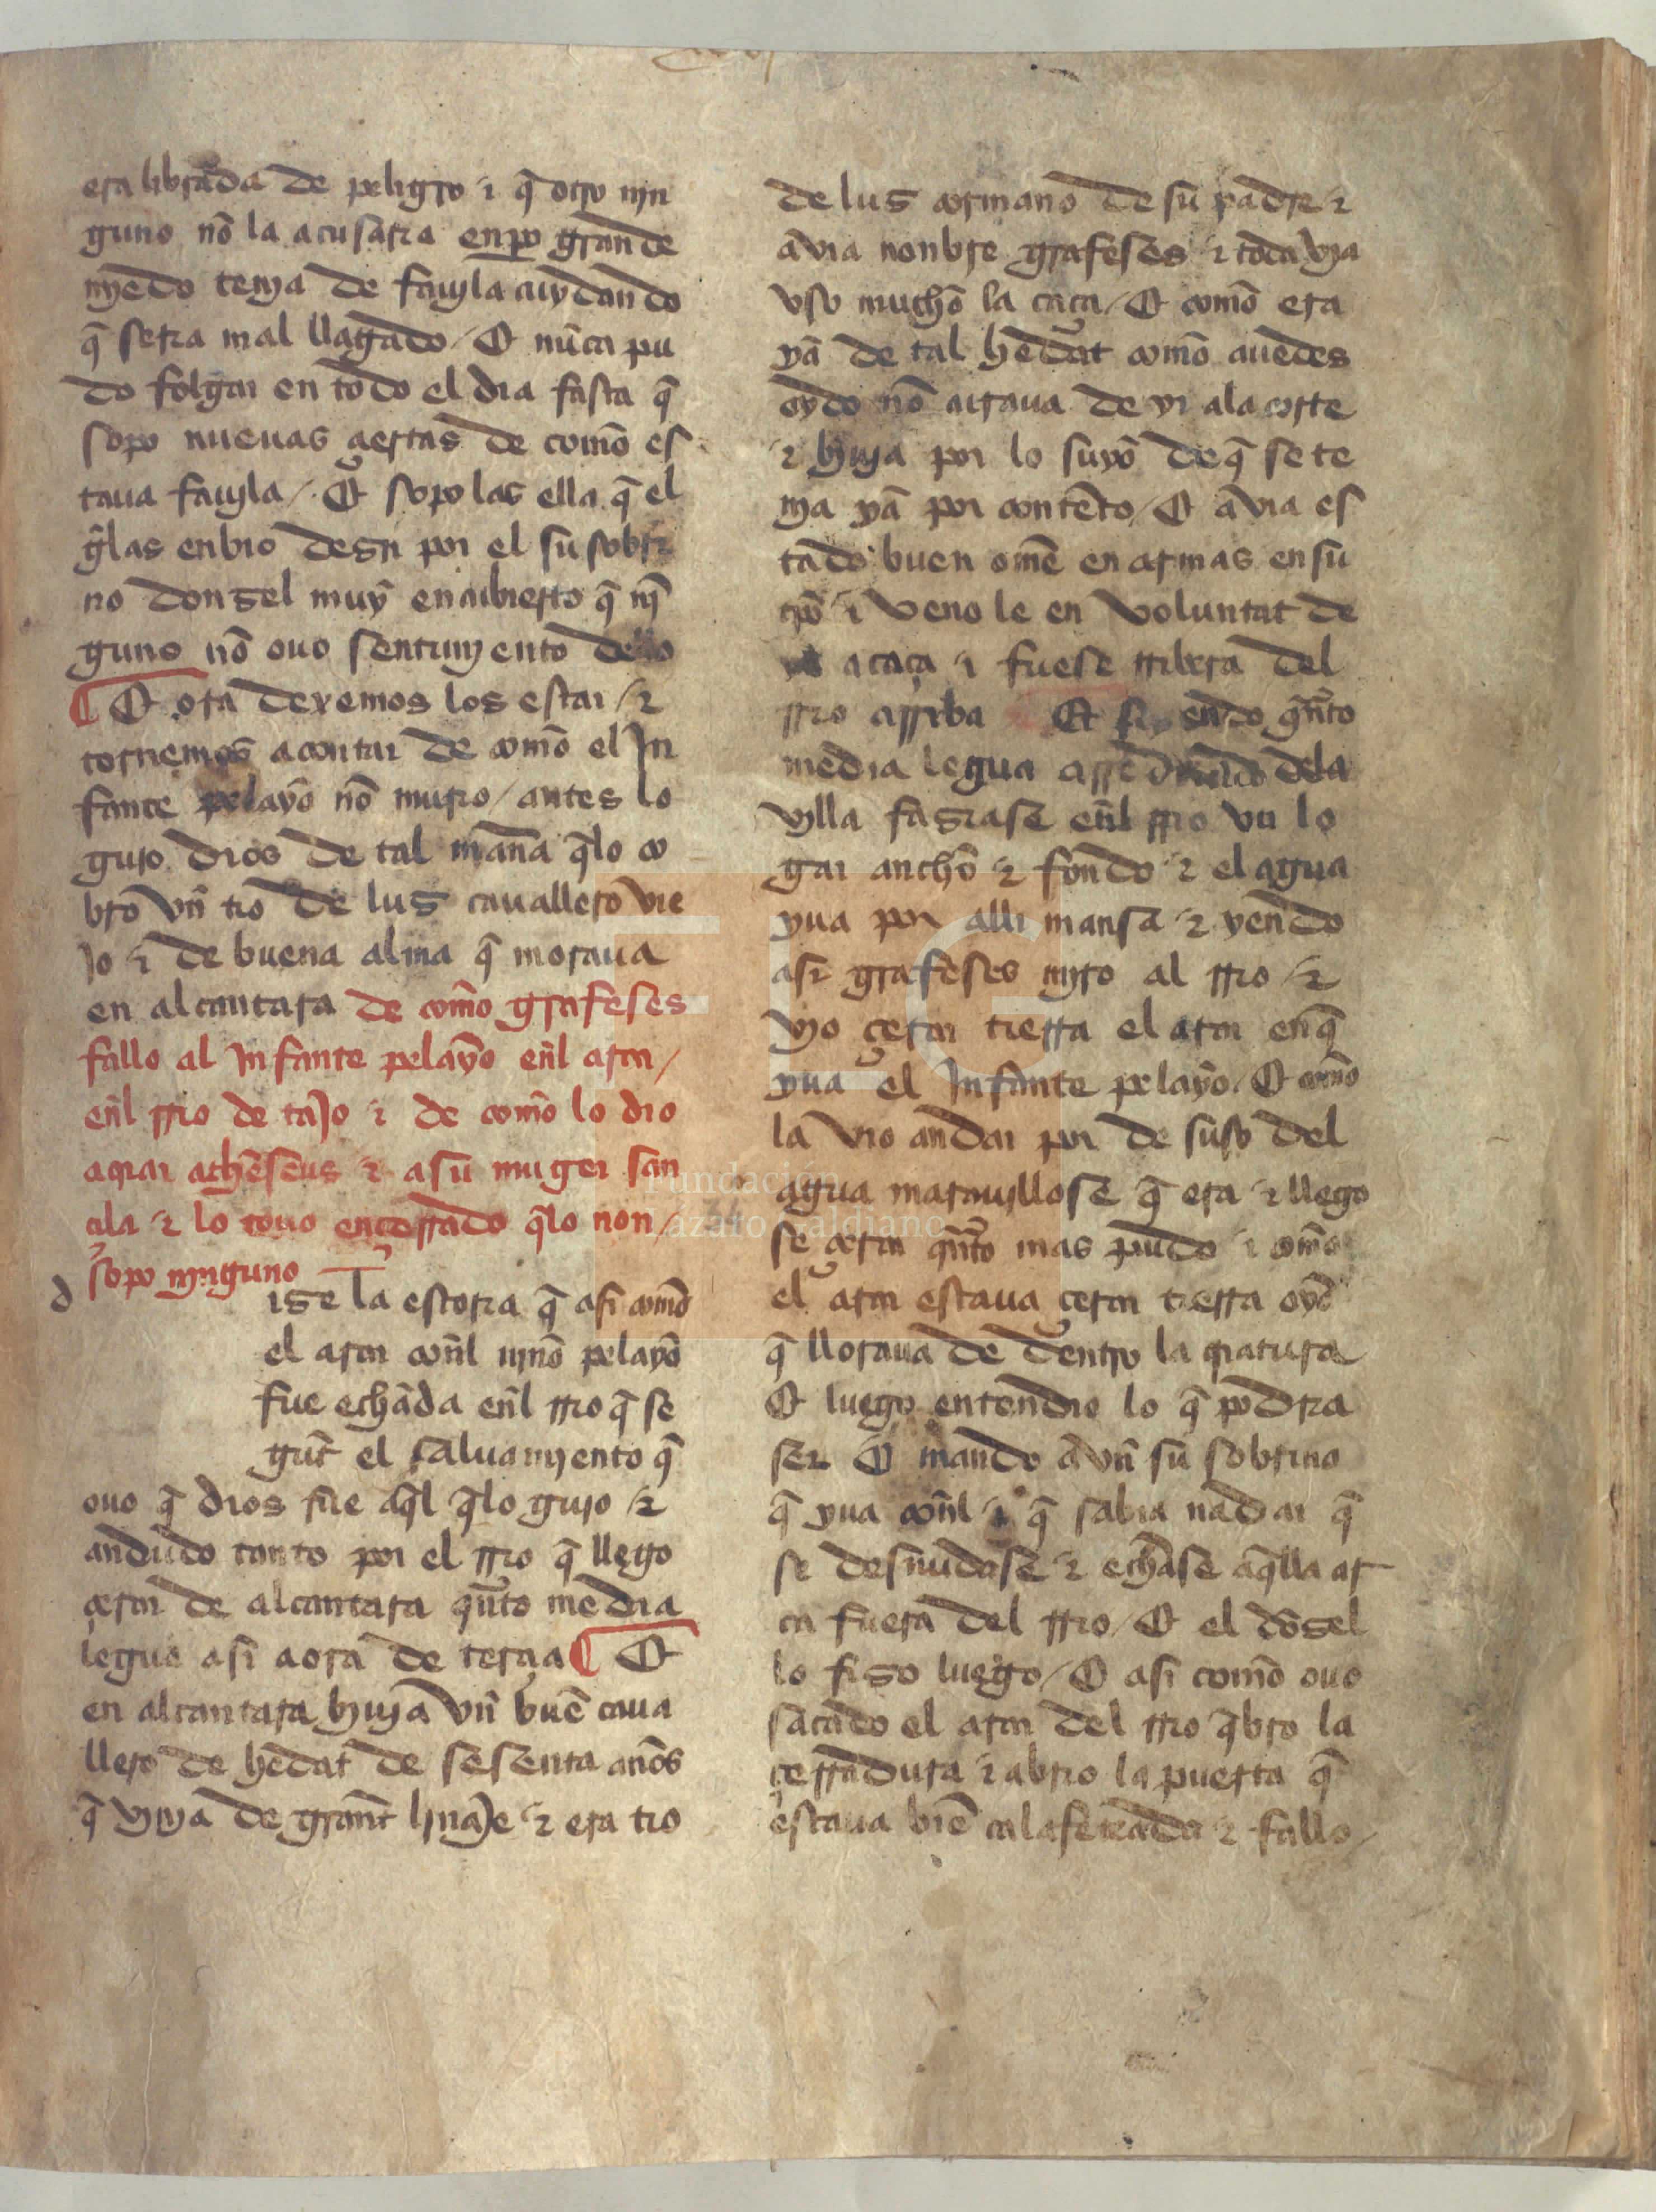 era librada de peligro & q̃ otro njn
guno nõ la acusaria enp̱o grande
mjedo tenja de fauila cuydando
q̃ seria mal llagado / Et nũca pu
do folgar en todo el dia fasta q̃
sopo nueuas çiertas de comõ es
taua fauila / Et sopo las ella q̃ el
g̃las enbio desir por el su sobri
no donsel muỹ encubierto q̃ njn
guno nõ ouo sentimjento dello
Et ora dexemos los estar / &
tornemos a contar de comõ el In
fante pelayõ nõ murio / antes lo
guio dios de tal manã q̃lo co
bro vñ tio de lus cauallero vie
jo & de buena alma q̃ moraua
en alcantara de comõ grafeses
fallo al Infante pelayõ eñl arca /
eñl rrio de tajo & de comõ lo dio
acriar athẽseus & a su muger san
çila & lo touo ençerrado q̃lo non /
sopo njnguno
d ise la estoria q̃ asi comõ
el arca coñl njnõ pelayõ
fue echãda eñl rrio q̃ se
gũt el saluamjento q̃
ouo q̃ dios fue aq̃l q̃lo guio &
andudo tanto por el rrio q̃ llego
çerca de alcantara q̃nto media
legua asi a ora de terçia Et
en alcantara biuja vñ buẽ caua
llero de hedat de sesenta anõs
q̃ venja de grãnt linaje & era tio
de lus cormano de su padre &
avia nonbre grafeses & toda vja
vso muchõ la caça / Et comõ era
yã de tal hedat comõ auedes
oydo nõ curaua de yr ala corte
& biuja por lo suyõ de q̃ se te
nja yã por contẽto / Et avia es
tado buen omẽ en armas en su
tp̃o & veno le en voluntat de
yr a caça & fuese rribera del
rrio arriba Et seyendo q̃nto
media legua arredrado dela
villa fasiase eñl rrio vn lo
gar anchõ & fondo & el agua
yua por alli mansa & yendo
asi grafeses mjro al rrio &
vjo çerca tierra el arca en q̃
yua el Infante pelayõ / Et comõ
la vio andar por de suso del
agua marauillose q̃ era & llego
se çerca q̃nto mas pudo & comõ
el arca estaua çerca tierra oyõ
q̃ lloraua de dentro la criatura
Et luego entendio lo q̃ podria
ser Et mando a vñ su sobrino
q̃ yua coñl & q̃ sabia nadar q̃
se desnudase & echase aq̃lla ar
ca fuera del rrio / Et el dõsel
lo fiso luego / Et asi comõ ouo
sacado el arca del rrio q̃bro la
çerradura & abrio la puerta q̃
estaua biẽ calafeteada & fallo /
FLG
Fundación
Lázaro Galdiano